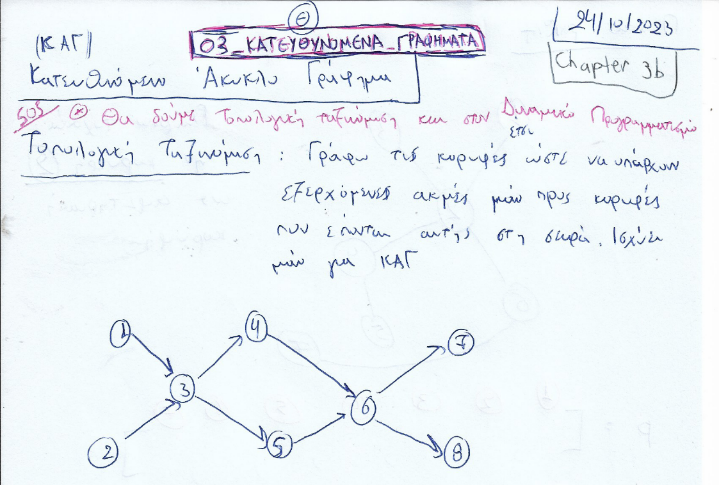 Θ
24/10/2023
(ΚΑΓ)
03_ΚΑΤΕΥΘΥΝΟΜΕΝΑ_ΓΡΑΦΗΜΑΤΑ
Chapter 3b
Κατευθυνόμενο Άκυκλο Γράφημα
SOS * Θα δούμε Τοπολογική ταξινόμηση και στον Δυναμικό Προγραμματισμό
Τοπολογική Ταξινόμηση : Γράφω τις κορυφές έτσι ώστε να υπάρχουν
εξερχόμενες ακμές μόνο προς κορυφές
που έπονται αυτής στη σειρά. Ισχύει
μόνο για ΚΑΓ
1
4
7
3
6
2
5
8